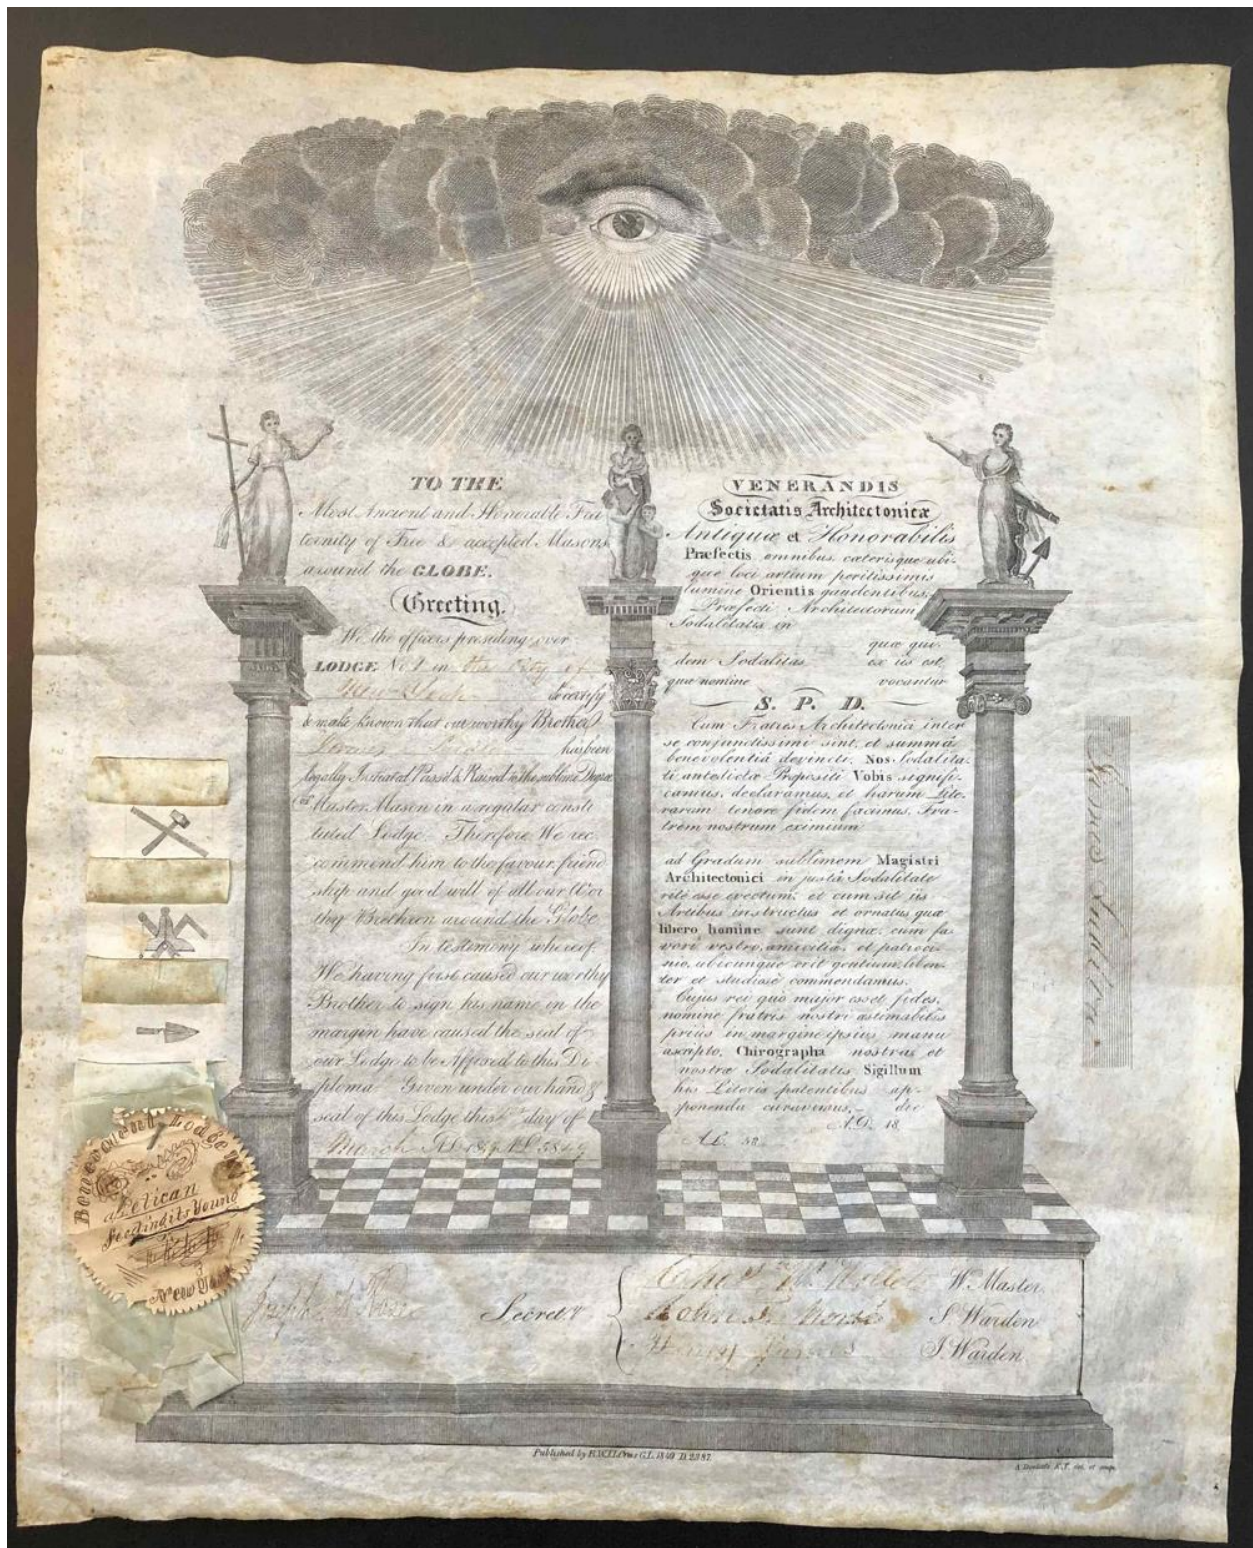 TO THE
Most Ancient and Honorable Fra
ternity of Free & accepted Masons
around the GLOBE.
Greeting.
We the officers presiding over
LODGE No 1 in the City of
New York do certify
& make known that our worthy Brother
has been
legally Initiated Passed & Raised to the sublime Degree
of Master Mason in a regular consti
tuted Lodge Therefore We rec
commend him to the favour friend
ship and good will of all our Wor
thy Brethren around the Globe
In testimony whereof
We having first caused our worthy
Brother to sign his name in the
margin have caused the seal of
our Lodge to be Affixed to this Di
ploma Given under our hand &
seal of this Lodge this day of
March AD 1849 AL 5849
VENERANDIS
Societatis Architectonicæ
Antiquæ et Honorabilis
Præfectis omnibus, cæterisque ubi-
que loci artium peritissimis
lumine Orientis gaudentibus,
Præfecti Architectorum
Sodalitatis in
quæ qui-
dem Sodalitas ex iis est,
quæ nomine vocantur
S. P. D.
Cum Fratres Architectonici inter
se conjunctissimi sint, et summâ
benevolentiâ devincti, Nos Sodalita-
ti antedictæ Præpositi Vobis signifi-
camus, declaramus, et harum Lite-
rarum tenore fidem facimus, Fra-
trem nostrum eximium
ad Gradum sublimem Magistri
Architectonici in justâ Sodalitate
ritè esse evectum; et cum sit iis
Artibus instructus et ornatus quæ
libero homine sunt dignæ, eum fa-
vori vestro, amicitiæ, et patroci-
nio, ubicunque erit gentium, liben-
ter et studiosè commendamus.
Cujus rei quo major esset fides,
nomine fratris nostri æstimabilis
priùs in margine ipsius manu
ascripto, Chirographa nostra et
nostræ Sodalitatis Sigillum
his Literis patentibus ap-
ponenda curavimus, die
A.D. 18
A.L. 58
Benevolent Lodge
a Pelican
Feeding its Young
New York
Joseph Secret.y
W. Master
John S. S. Warden
Henry James J. Warden
Published by 1849